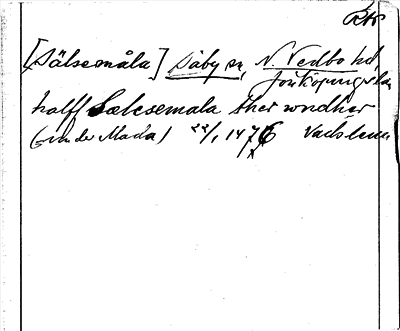 [Sälsemåla] Säby sn, N. Vedbo hd,
Jönköpings län
halff Sælesemala ther wndher
(under Mada) 22/1 1476 Vadstena